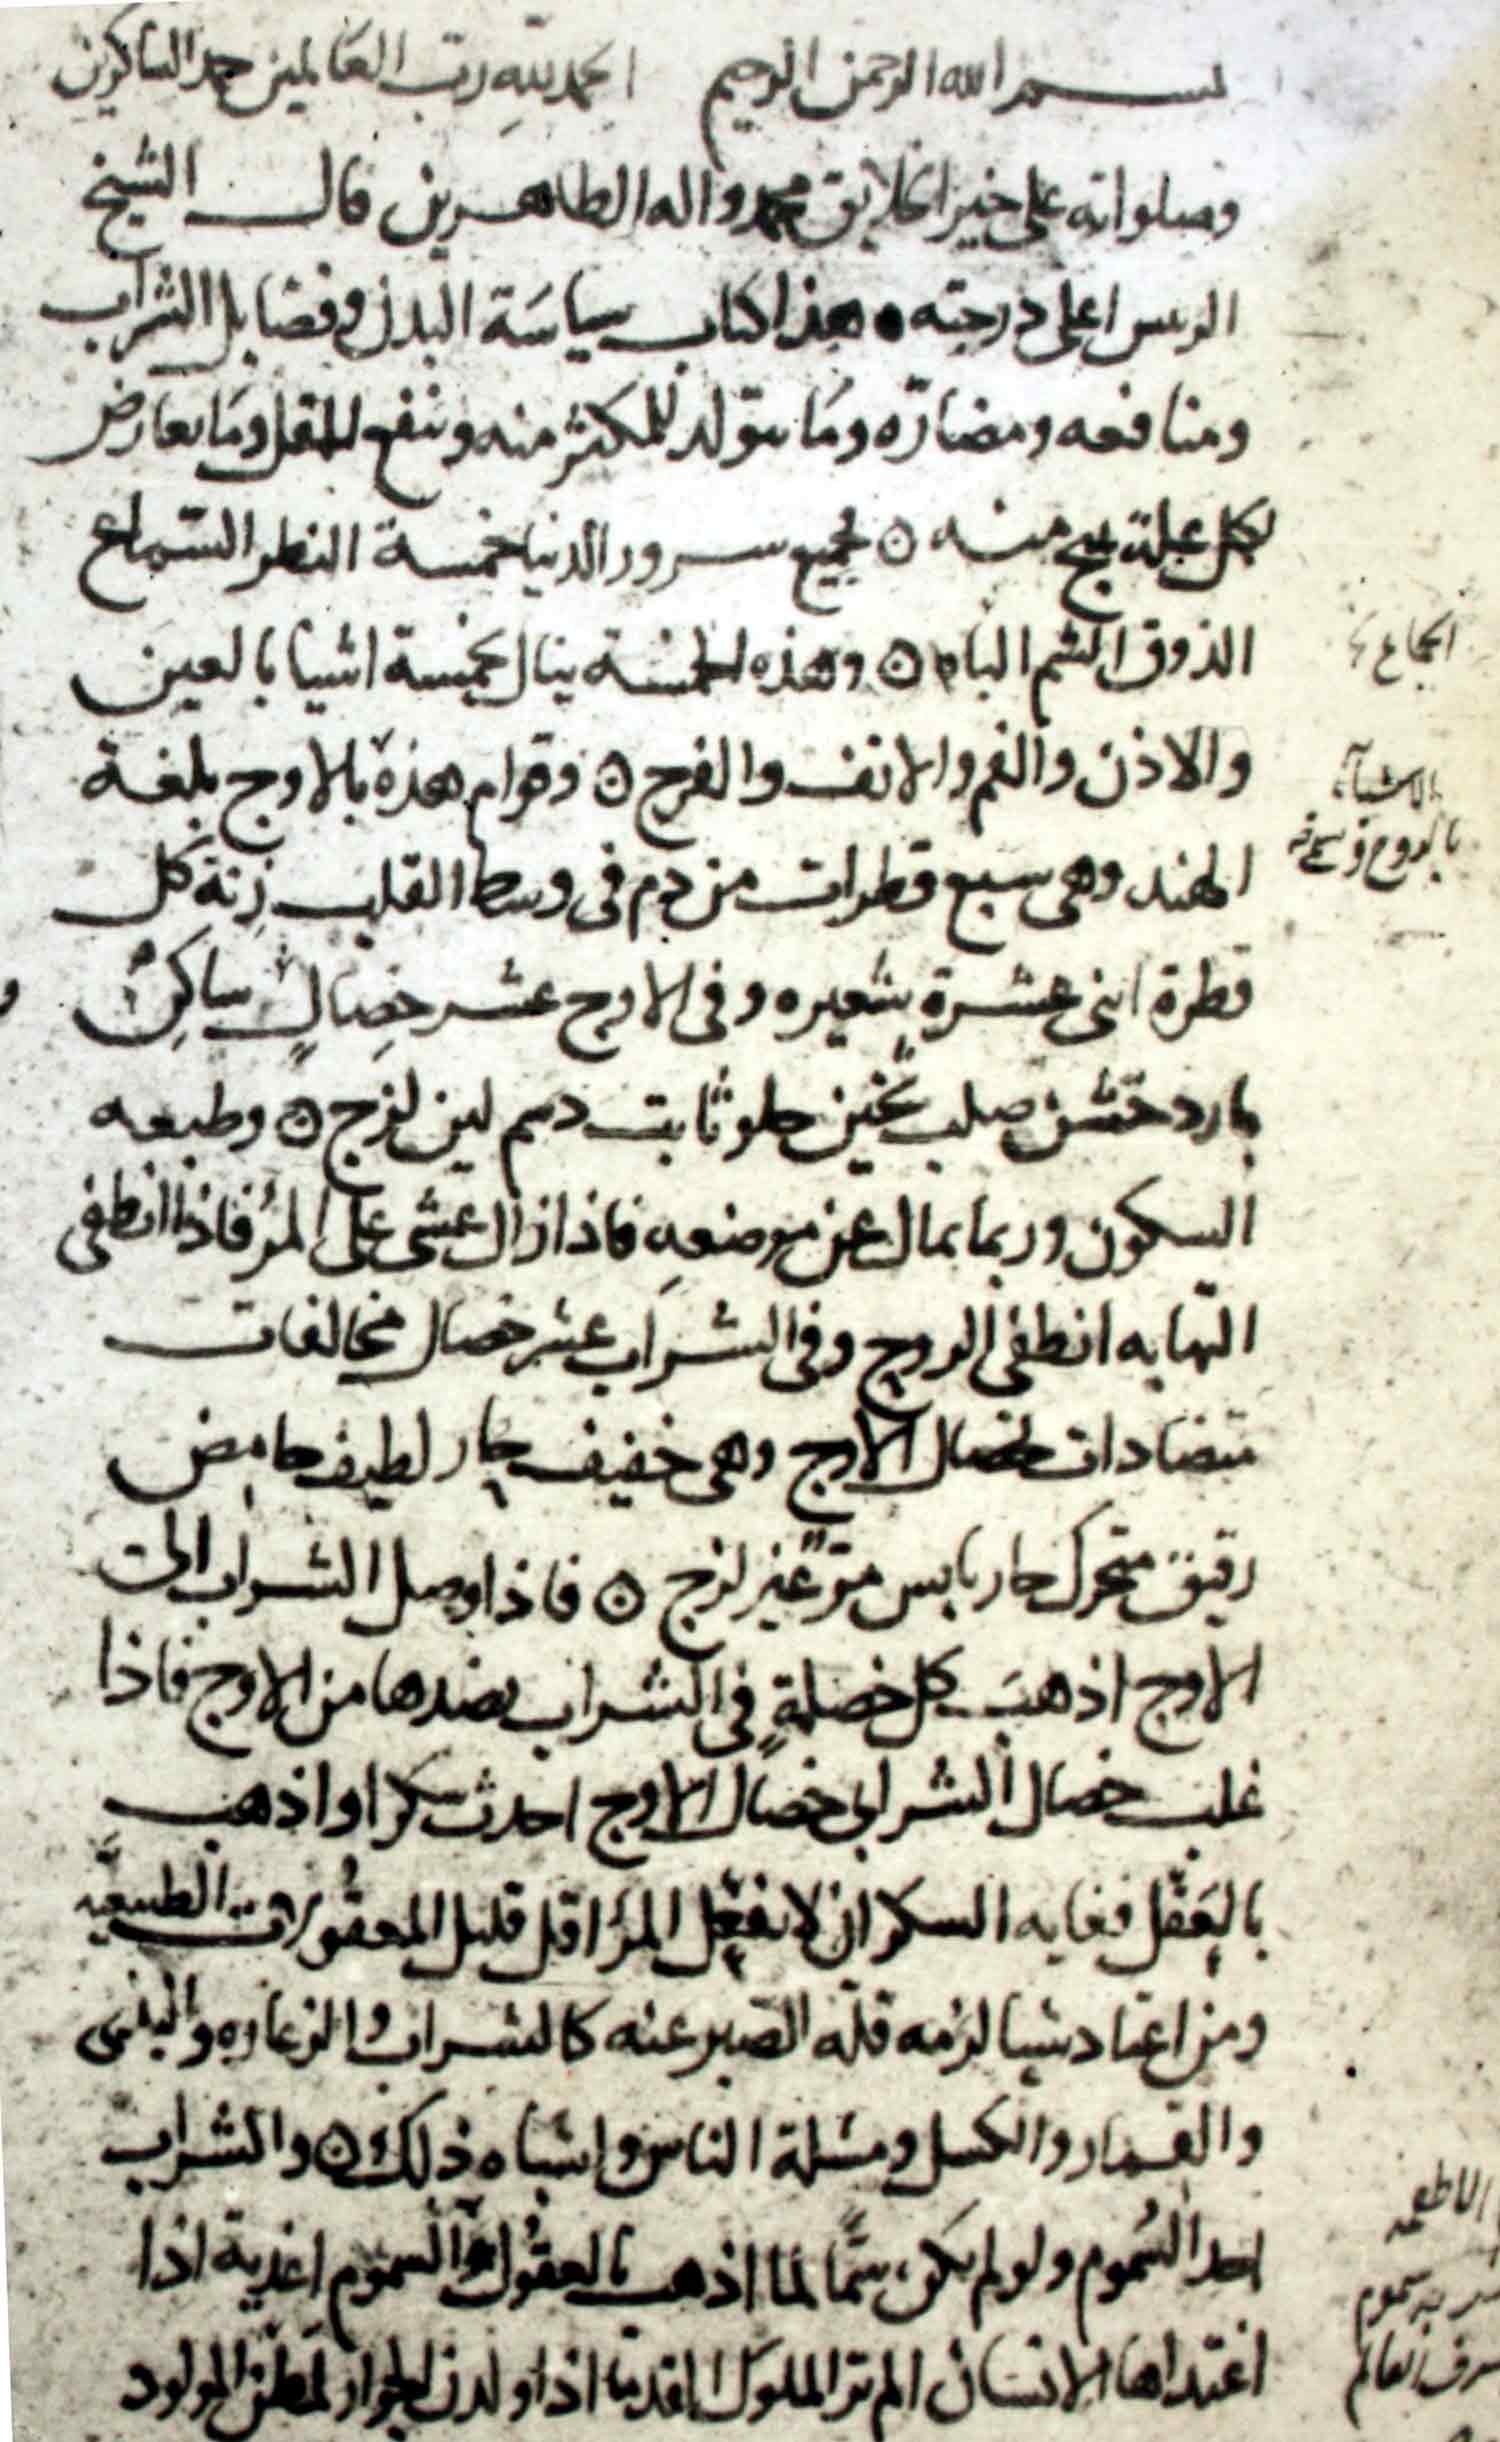 بسم الله الرحمن الرحيم الحمد لله رب العالمين حمد الشاكرين
وصلواته على خير الخلايق محمد واله الطاهرين قال الشيخ
الريس اعلى درجته هذا كتاب سياسة البدن وفضايل الشراب
ومنافعه ومضاره وما يتولد للمكثر منه وينفع للمقل وما يعارض
لكل علة منه ۞ لجميع سرور الدنيا خمسة النظر السماع
الذوق الشم الباه ۞ وهذه الخمسة ينال بخمسة اشيا بالعين
والاذن والفم والانف والفرج ۞ وقوام هذه بالاوج بلغة
الهند وهى سبع قطرات من دم فى وسط القلب زنة كل
قطرة اثنى عشرة شعيره وفى الاوج عشر خصال ساكن
بارد خشن صلب ثخين حلو ثابت دسم لين لزج ۞ وطبعه
السكون وربما مال عن موضعه فاذا زال غشى على المرء فاذا انطفى
التهابه انطفى الروح وفى الشراب عشر خصال مخالفات
متضادات لخصال الاوج وهى خفيف حار لطيف حامض
رقيق متحرك حار يابس مر غير لزج ۞ فاذا وصل الشراب الى
الاوج اذهب كل خصلة فى الشراب بضدها من الاوج فاذا
غلب خصال الشراب خصال الاوج احدث سكرا واذهب
بالعقل فغايه السكر ان لا يفعل المرء اقل قليل الطبيعيه
ومن اعتاد شيا لزمه قلة الصبر عنه كالشراب والزعاره
والقمار والكسل ومسلة الناس واشباه ذلك ۞ والشراب
احد السموم ولو لم يكن سما لما اذهب بالعقول والسموم اغذية اذا
اغتذاها الانسان الم تر الملوك القدما اذا ولدن الجوار المولود
الجماع
الاشياء
بالروح فى نسخه
الاطعمه
سموم